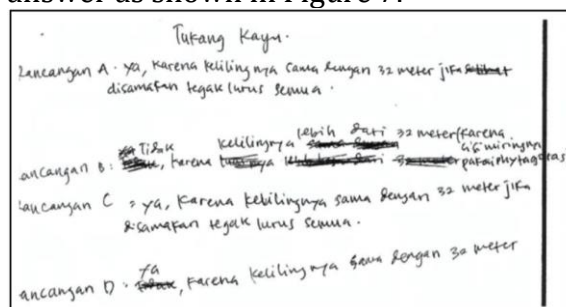 answer as shown in Figure 7.
Tukang Kayu.
Rancangan A. ya, karena kelilingnya sama dengan 32 meter jika
disamakan tegak lurus semua.
ancangan B: Tidak, karena kelilingnya lebih dari 32 meter (karena
sisi miringnya
pakai phytagoras
Rancangan C = ya, karena kelilingnya sama dengan 32 meter jika
disamakan tegak lurus semua.
ancangan D. ya, karena kelilingnya sama dengan 32 meter